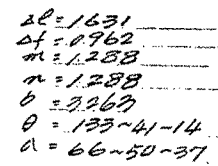 Δl = 1631
Δf = 0.962
m = 1.288
n = 1.288
b = 3263
θ = 133-41-14
d = 66-50-37